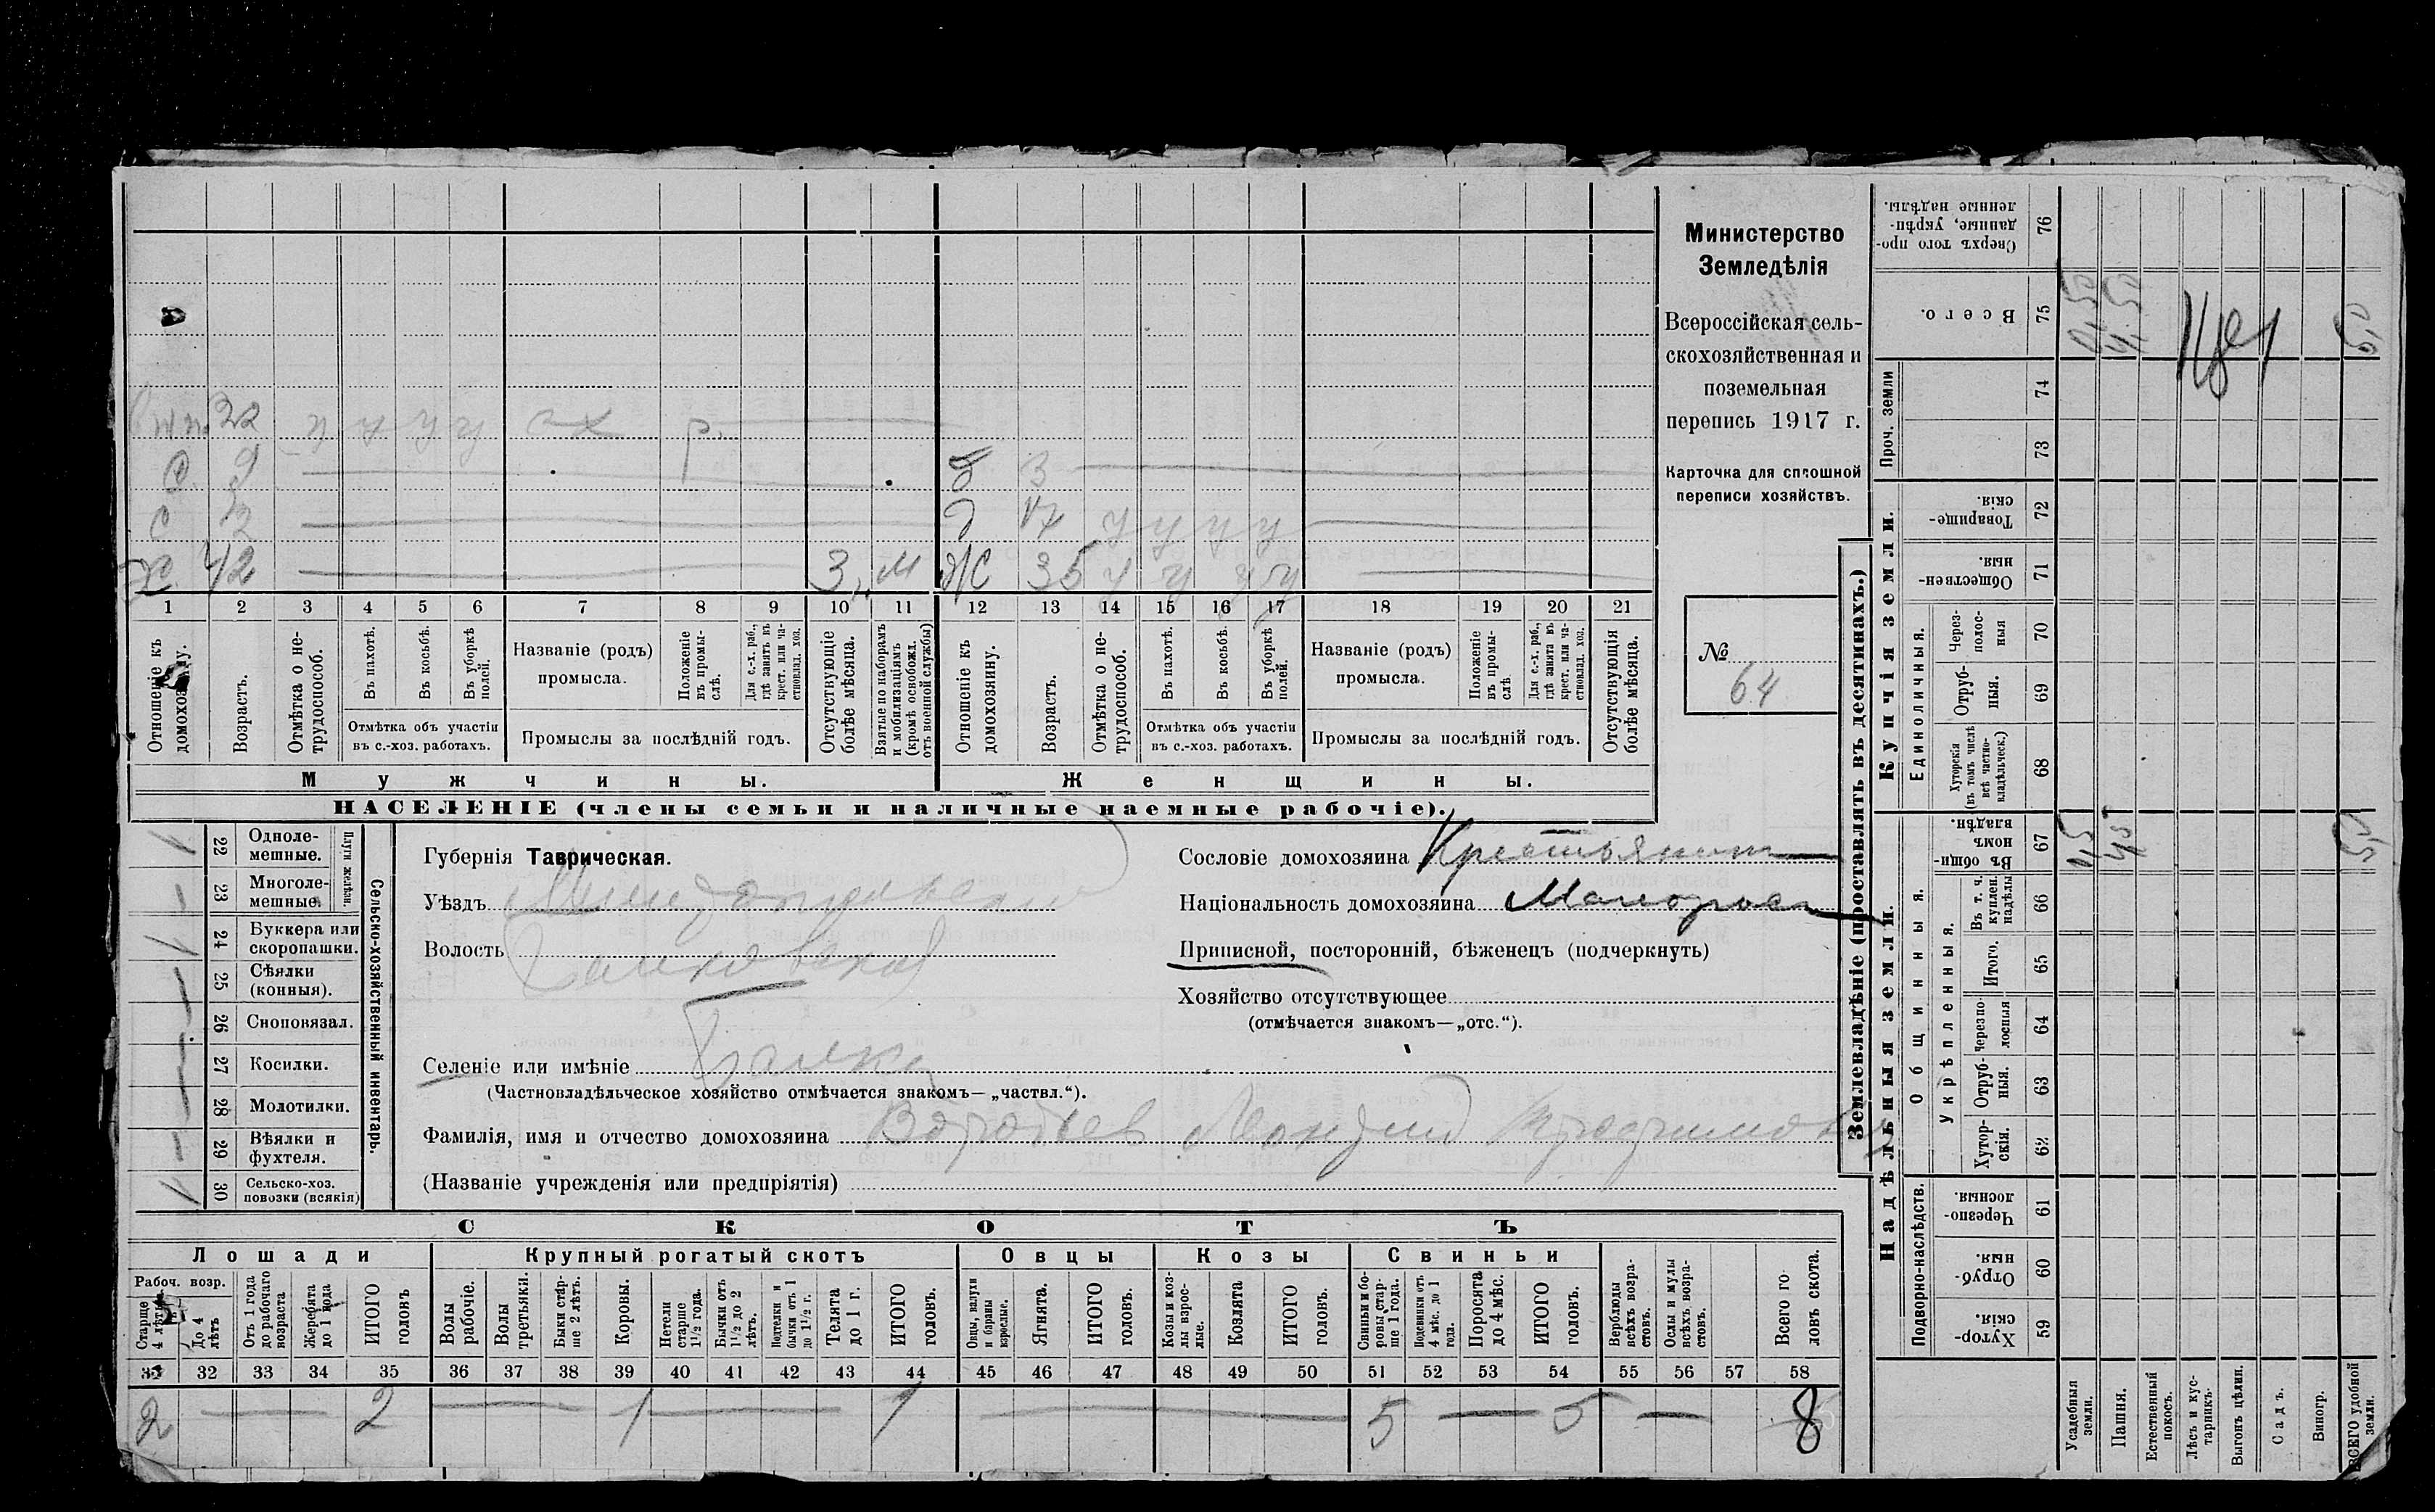 Министерство
Земледѣлія
Всероссійская сель-
скохозяйственная и
поземельная
перепись 1917 г.
Карточка для сплошной
переписи хозяйствъ.
№
64
32 сх р.
с 9 3
с 2 д 17 у у у у
х 42 3 м ж 35 у у у у
1 2 3 4 5 6 7 8 9 10 11 12 13 14 15 16 17 18 19 20 21
Отношеніе къ домохозяину.
Возрастъ.
Отмѣтка о не-трудоспособ.
Въ пахотѣ.
Въ косьбѣ.
Въ уборкѣ полей.
Отмѣтка объ участіи
въ с.-хоз. работахъ.
Названіе (родъ)
промысла.
Положеніе въ промы-слѣ.
Для с.-х. раб., гдѣ занятъ въ крест. или ча-стновлад. хоз.
Промыслы за послѣдній годъ.
Отсутствующіе болѣе мѣсяца.
Взятые по наборамъ и мобилизаціямъ (кромѣ освобожд. отъ военной службы)
Отношеніе къ домохозяину.
Возрастъ.
Отмѣтка о не-трудоспособ.
Въ пахотѣ.
Въ косьбѣ.
Въ уборкѣ полей.
Отмѣтка объ участіи
въ с.-хоз. работахъ.
Названіе (родъ)
промысла.
Положеніе въ промы-слѣ.
Для с.-х. раб., гдѣ занята въ крест. или ча-стновлад. хоз.
Промыслы за послѣдній годъ.
Отсутствующія болѣе мѣсяца.
Мужчины.
Женщины.
НАСЕЛЕНІЕ (члены семьи и наличные наемные рабочіе).
Сельско-хозяйственный инвентарь.
Плуги желѣзн.
22 Одноле-мешные.
23 Многоле-мешные.
24 Буккера или скоропашки.
25 Сѣялки (конныя).
26 Сноповязал.
27 Косилки.
28 Молотилки.
29 Вѣялки и фухтеля.
30 Сельско-хоз. повозки (всякія)
Губернія Таврическая.
Уѣздъ Мелитопольский
Волость Балковская
Селеніе или имѣніе Балки
(Частновладѣльческое хозяйство отмѣчается знакомъ— „частвл.“).
Фамилія, имя и отчество домохозяина Воробьев
(Названіе учрежденія или предпріятія)
Сословіе домохозяина Крестьянинъ
Національность домохозяина Малоросс
Приписной, посторонній, бѣженецъ (подчеркнуть)
Хозяйство отсутствующее
(отмѣчается знакомъ—„отс.“).
СКОТЪ
Лошади
Крупный рогатый скотъ
Овцы
Козы
Свиньи
Рабоч. возр.
Старше 4 лѣтъ
До 4 лѣтъ
Отъ 1 года до рабочаго возраста
Жеребята до 1 года
ИТОГО головъ
Волы рабочіе.
Волы третьяки.
Быки стар-ше 2 лѣтъ.
Коровы.
Нетели старше 1½ года.
Бычки отъ 1½ до 2 лѣтъ.
Подтелки и бычки отъ 1 до 1½ г.
Телята до 1 г.
ИТОГО головъ.
Овцы, валухи и бараны взрослые.
Ягнята.
ИТОГО головъ.
Козы и коз-лы взрос-лые.
Козлята
ИТОГО головъ.
Свиньи и бо-ровы стар-ше 1 года.
Подсвинки отъ 4 мѣс. до 1 года.
Поросята до 4 мѣс.
ИТОГО головъ.
Верблюды всѣхъ возра-стовъ.
Ослы и мулы всѣхъ возра-стовъ.
Всего го-ловъ скота.
31 32 33 34 35 36 37 38 39 40 41 42 43 44 45 46 47 48 49 50 51 52 53 54 55 56 57 58
2 — 2 — 1 — 1 — 5 — 5 — 8
Землевладѣніе (проставлять въ десятинахъ.)
Надѣльныя земли.
Купчія земли.
Проч. земли
Подворно-наслѣдств.
Общинныя.
Укрѣпленныя.
Единоличныя.
Сверхъ того про-данные, укрѣп-ленные надѣлы. 76
Всего. 75
74
73
Товарище-скія. 72
Обществен-ныя. 71
Через-полос-ныя 70
Отруб-ныя. 69
Хуторскія (въ томъ числѣ всѣ частно-владѣльческ.) 68
Въ общин-номъ владѣн. 67
Въ т. ч. куплен. надѣлы 66
Итого. 65
Черезпо-лосныя 64
Отруб-ныя. 63
Хутор-скія. 62
Черезпо-лосныя. 61
Отруб-ныя. 60
Хутор-скія. 59
Усадебныя земли.
Пашня.
Естественный покосъ.
Лѣсъ и кус-тарникъ.
Выгонъ цѣлин.
Садъ.
Виногр.
ВСЕГО удобной земли.